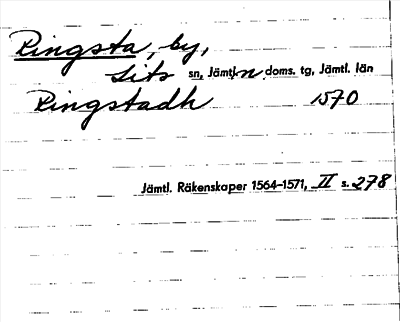 Ringsta, by,
Lits sn, Jämtl. n. doms. tg, Jämtl. län
Ringstadh 1570
Jämtl. Räkenskaper 1564-1571, II s. 278